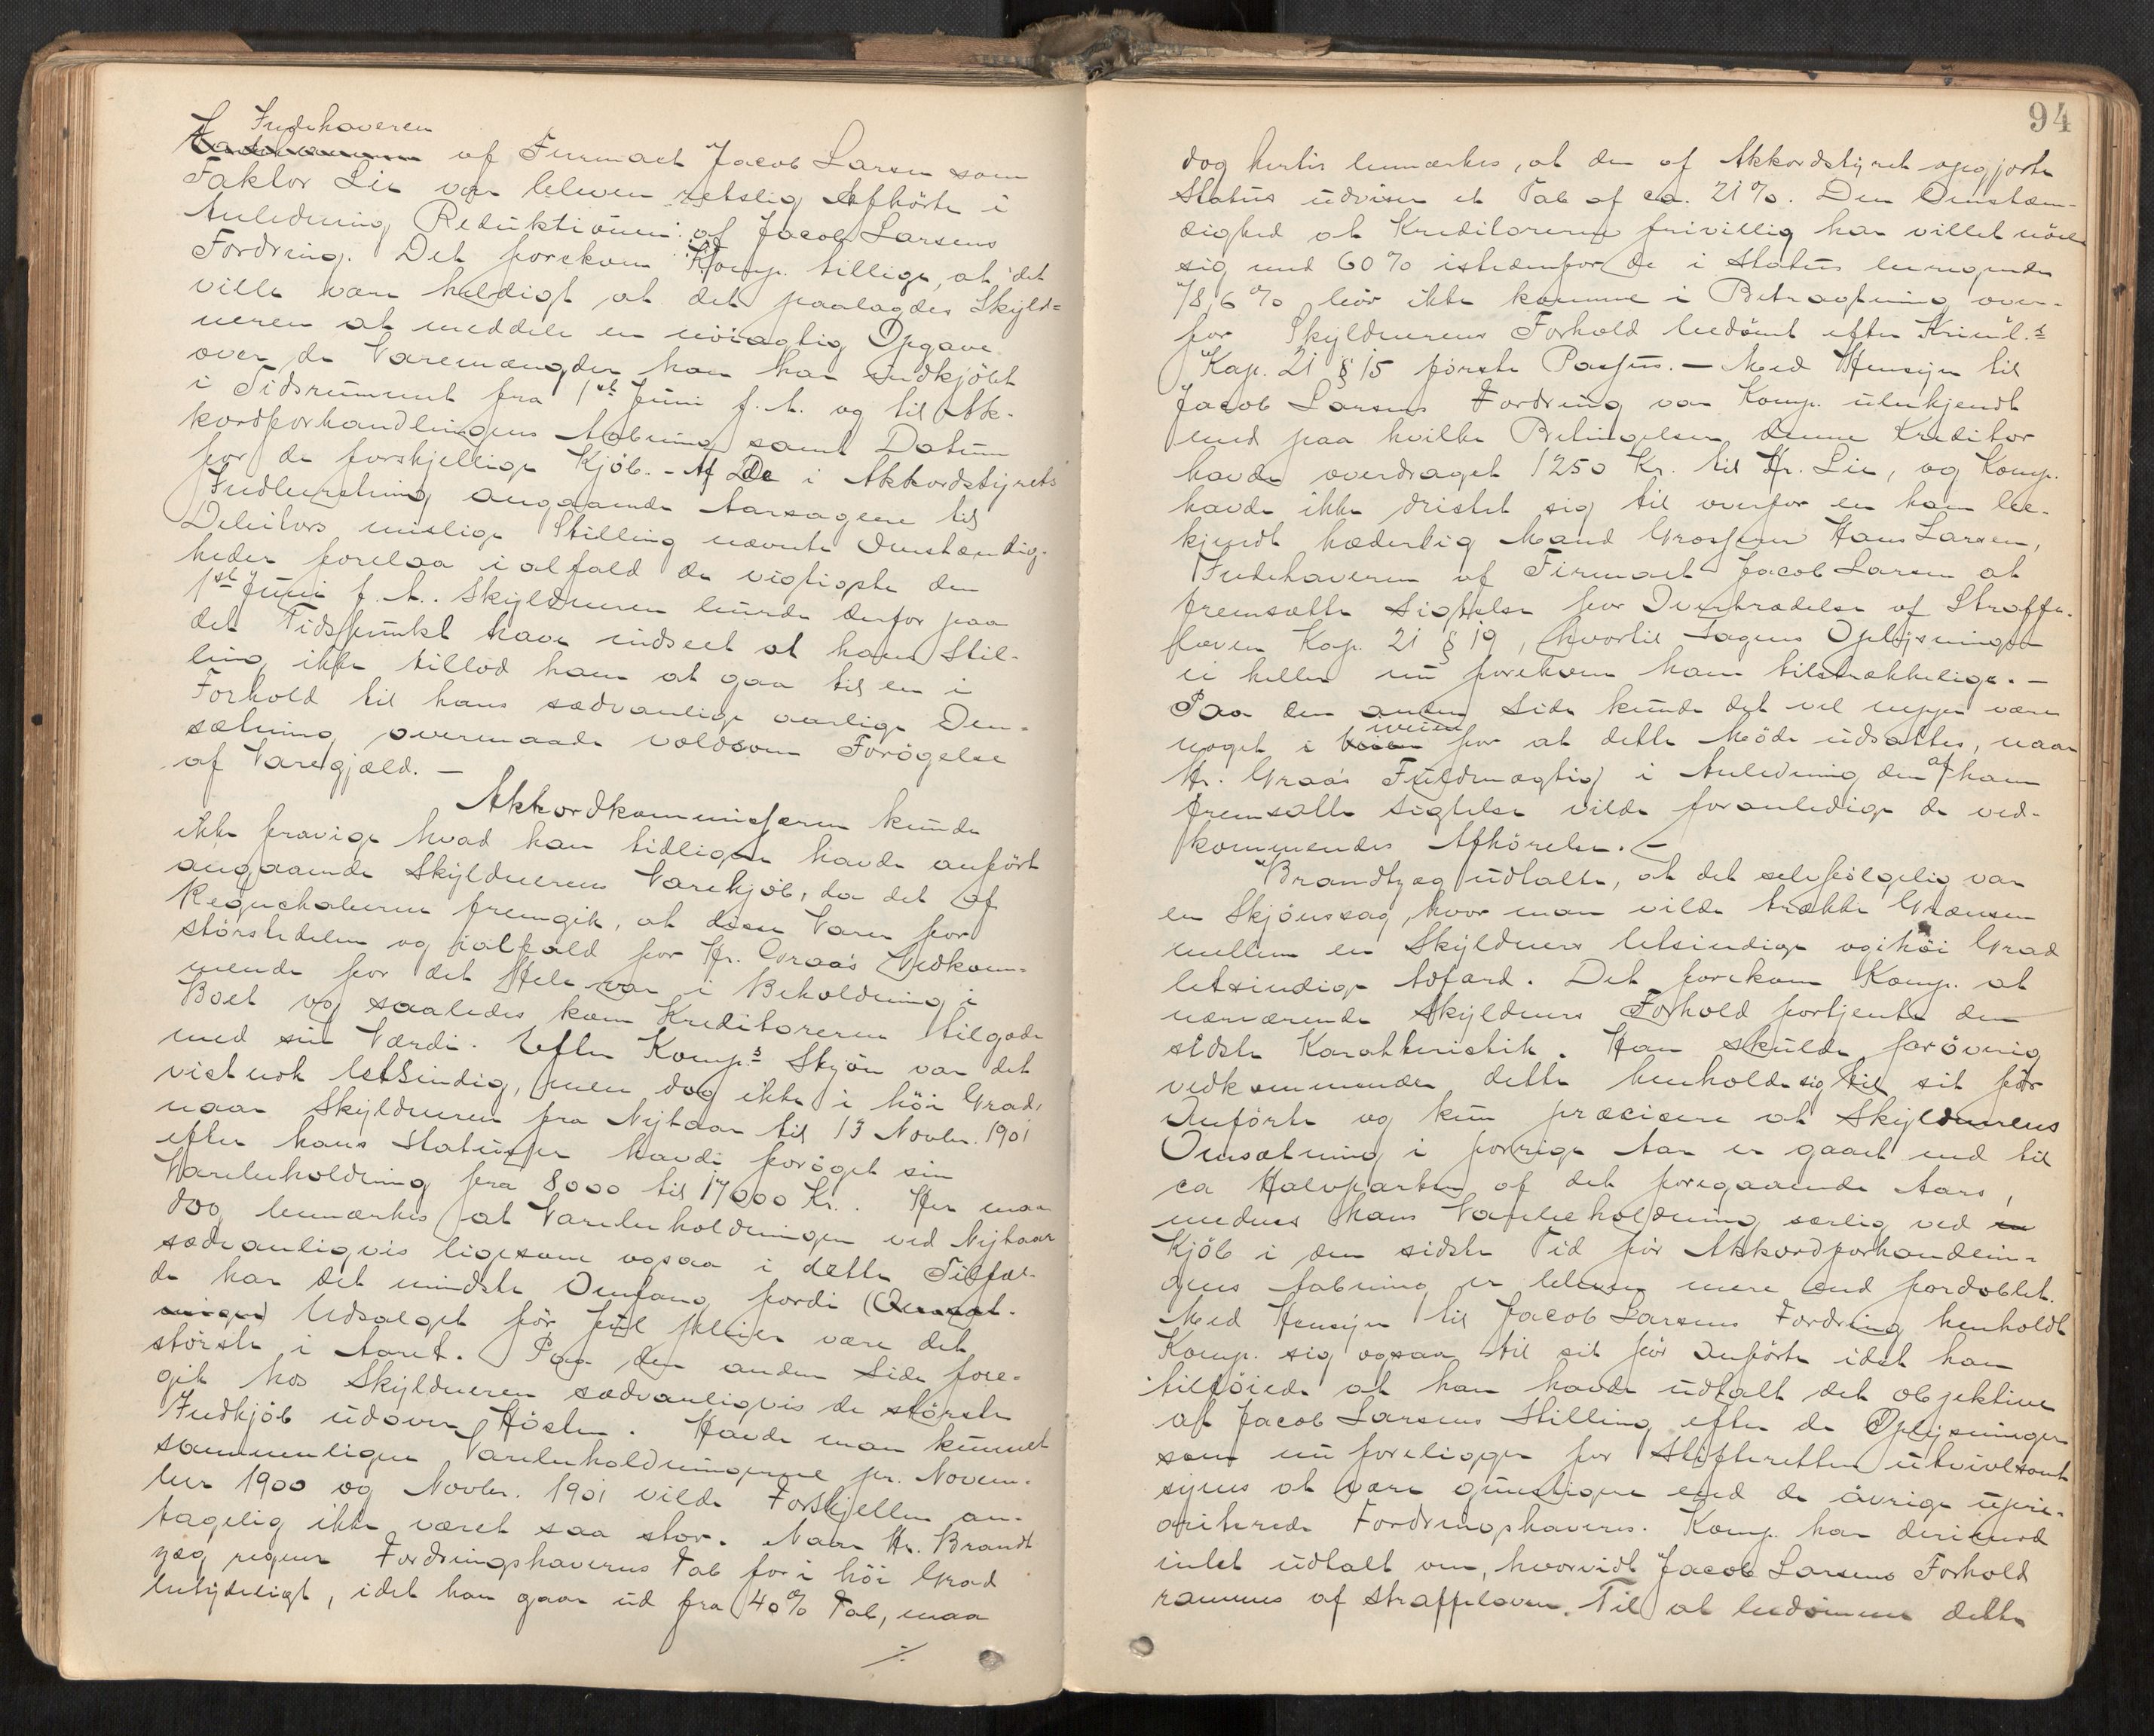 Indehaveren
af Firmaet Jacob Larsen som
Faktor Lie var bleven retslig Afhørte i
Anledning Reduktionen af Jacob Larsens
Fordring. Det forekom Komp. tillige, at det
ville være heldigt at det paalagdes Skyld-
neren at meddele en nöiagtig Opgave
over de Varemængder han har indkjöbt
i Tidsrummet fra 1ste Juni f. A. og til Ak-
kordforhandlingens Aabning samt Datum
for de forskjellige Kjöb. - Af De i Akkordstyrets
Indberetning angaaende Aarsagerne til
Debitors mislige Stilling nævnte Omstændig-
heder forelaa ialfald de vigtigste den
1ste Juni f. A.. Skyldneren burde derfor paa
det Tidspunkt have indseet at hans Stil-
ling ikke tillod ham at gaa til en i
Forhold til hans sædvanlige aarlige Om-
sætning overmaade voldsom Forögelse
af Varegjæld. —
Akkordkommissæren kunde
ikke fravige hvad han tidligere havde anfört
angaaende Skyldnerens Varekjöb, da det af
Regnskaberne fremgik, at disse Varer for
störstedelen og ialfald for Hr. Graas Vedkom-
mende for det Hele var i Beholdning i
Boet og saaledes kom Kreditorerne tilgode
med sin Værdi. Efter Komp.s Skjön var det
vistnok letsindig, men dog ikke i höi Grad,
naar Skyldneren fra Nytaar til 13 Novbr. 1901
efter hans Statusser havde foröget sin
Varebeholdning fra 8000 til 17000 Kr.. Her maa
dog bemærkes at Varebeholdningen ved Nytaar
sædvanligvis ligesom ogsaa i dette Tilfæl-
de har det mindste Omfang fordi (Omsæt-
ningen) Udsalget för Jul pleier være det
störste i Aaret. Paa den anden Side fore-
gik hos Skyldneren sædvanligvis de störste
Indkjöb udover Hösten. Havde man kunnet
sammenligne Varebeholdningerne pr. Novem-
ber 1900 og Novbr. 1901 vilde Forskjellen an-
tagelig ikke været saa stor. Naar Hr. Brandt-
zæg regner Fordringshavernes Tab for i höi Grad
betydeligt, idet han gaar ud fra 40% Tab, maa
./.
94
dog hertil bemærkes, at den af Akkordstyret opgjorte
Status udviser et Tab af ca. 21%. Den Omstæn-
dighed at Kreditorerne frivillig har villet nöie
sig med 60% istedenfor de i Status beregnede
78,6% bör ikke komme i Betragtning over-
for Skyldnerens Forhold bedömt efter Kriml.s
Kap. 21 § 15 förste Passus. — Med Hensyn til
Jacob Larsens Fordring var Komp. ubekjendt
med paa hvilke Betingelser denne Kreditor
havde overdraget 1250 Kr. til Hr. Lie, og Komp.
havde ikke dristet sig til overfor en ham be-
kjendt hæderlig Mand Grosserer Hans Larsen,
Indehaveren af Firmaet Jacob Larsen at
fremsætte Sigtelse for Overtrædelse af Straffe-
loven Kap. 21 § 19, hvortil Sagens Oplysninger
ei heller nu forekom ham tilstrækkelige. —
Paa den anden Side kunde det vel neppe være
noget i veien for at dette Möde udsattes, naar
Hr. Graas Fuldmægtig i Anledning den af ham
fremsatte Sigtelse vilde foranledige de ved-
kommendes Afhörelse. —
Brandtzæg udtalte, at det selvfölgelig var
en Skjönssag, hvor man vilde trække Grænsen
mellem en Skyldners letsindige og i höi Grad
letsindige Adfærd. Det forekom Komp. at
nærværende Skyldners Forhold fortjente den
sidste Karakteristik. Han skulde forövrig
vedkommende dette henholde sig til sit för
Anförte og kun præcisere at Skyldnerens
Omsætning i forrige Aar er gaaet ned til
ca Halvparten af det foregaaende Aars,
medens hans Varebeholdning særlig ved
Kjöb i den sidste Tid för Akkordforhandlin-
gens Aabning er bleven mere end fordoblet.
Med Hensyn til Jacob Larsens Fordring henholdt
Komp. sig ogsaa til sit för Anförte idet han
tilföiede at han havde udtalt det objektive
at Jacob Larsens Stilling efter de Oplysninger
som nu foreligger for Skifteretten utvivlsomt
synes at være gunstigere end de övrige upri-
oriterede Fordringshaveres. Komp. har derimod
intet udtalt om, hvorvidt Jacob Larsens Forhold
rammes af Straffeloven. Til at bedömme dette